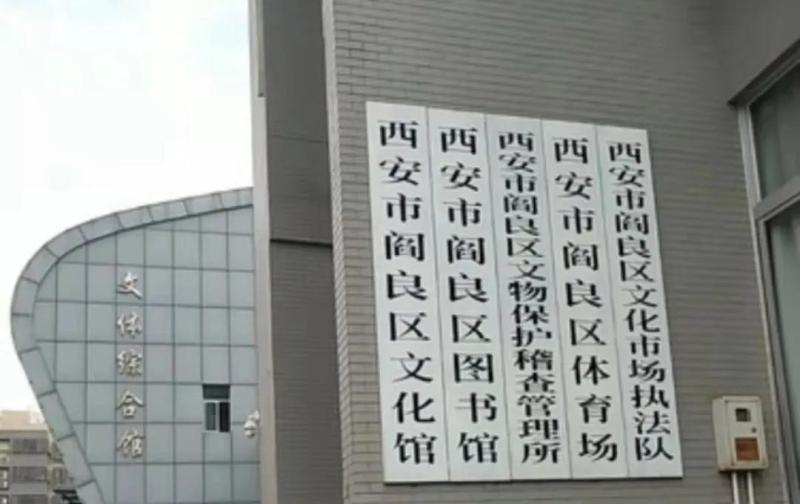 西安市阎良区文化馆
西安市阎良区图书馆
西安市阎良区文物保护稽查管理所
西安市阎良区体育场
西安市阎良区文化市场执法队
文体综合馆